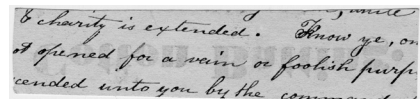 & charity is extended. Know ye, on
ot opened for a vain or foolish purp
cended unto you by the command